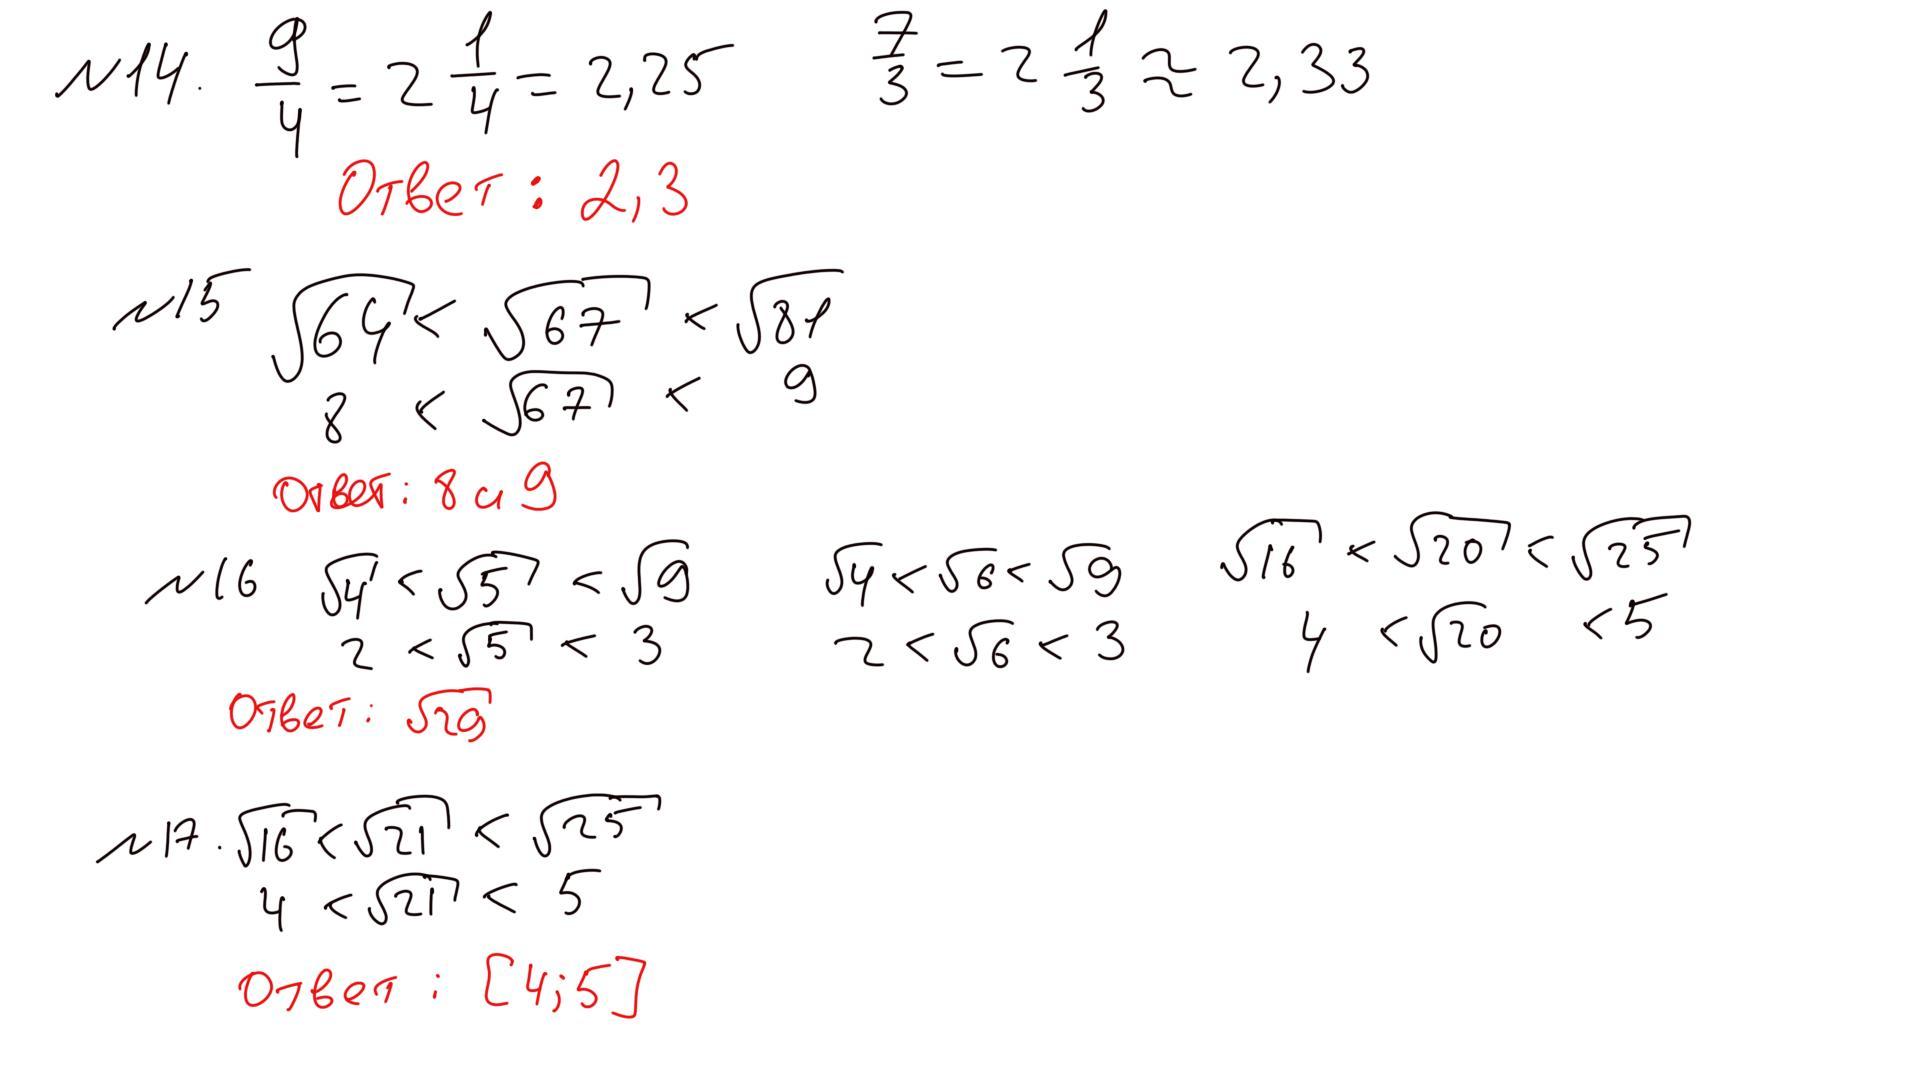 №14. 9/4 = 2 1/4 = 2,25 7/3 = 2 1/3 ≈ 2,33
Ответ: 2,3
№15 √64 < √67 < √81
8 < √67 < 9
Ответ: 8 и 9
№16 √4 < √5 < √9 √4 < √6 < √9 √16 < √20 < √25
2 < √5 < 3 2 < √6 < 3 4 < √20 < 5
Ответ: √29
№17. √16 < √21 < √25
4 < √21 < 5
Ответ: [4;5]